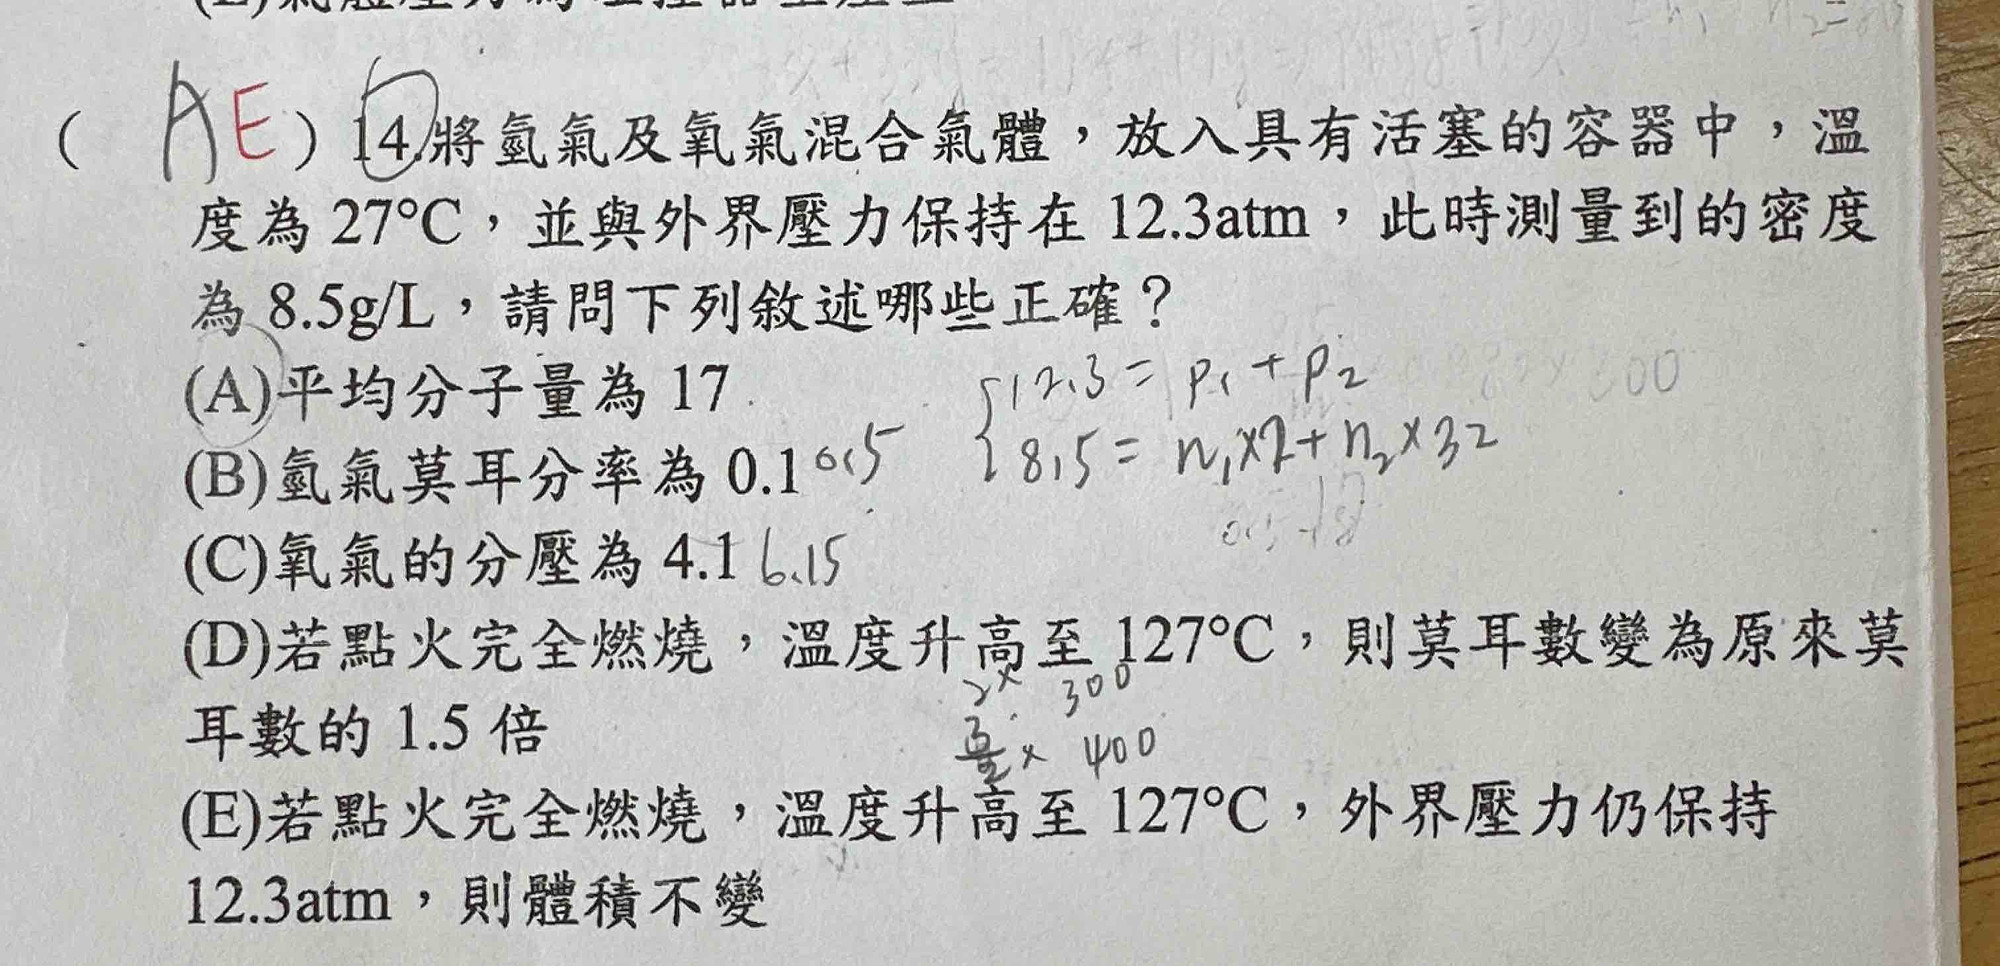 ( AE ) 14.將氫氣及氧氣混合氣體，放入具有活塞的容器中，溫
度為 27°C，並與外界壓力保持在 12.3atm，此時測量到的密度
為 8.5g/L，請問下列敘述哪些正確？
(A)平均分子量為 17
12.3 = P₁ + P₂
(B)氫氣莫耳分率為 0.1 0.5
8.5 = n₁×2 + n₂×32
(C)氧氣的分壓為 4.1 6.15
(D)若點火完全燃燒，溫度升高至 127°C，則莫耳數變為原來莫
2× 300
耳數的 1.5 倍
× 400
(E)若點火完全燃燒，溫度升高至 127°C，外界壓力仍保持
12.3atm，則體積不變